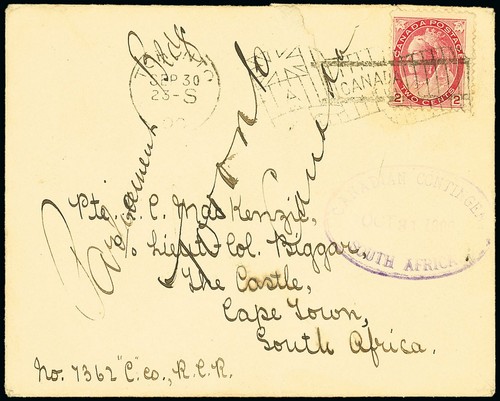 TORONTO
SEP 30
23-S
CANADA
CANADA POSTAGE
2 TWO CENTS 2
CANADIAN CONTINGENT
SOUTH AFRICA
Back
Parliament
Toronto
Pte. C. C. MacKenzie,
℅ Lieut-Col. Biggar,
The Castle,
Cape Town,
South Africa.
No. 7362 "C." co., R.C.R.